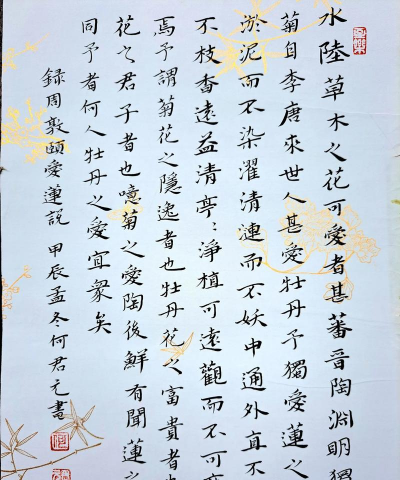 水陸草木之花可愛者甚蕃晉陶淵明獨
菊自李唐來世人甚愛牡丹予獨愛蓮之
淤泥而不染濯清漣而不妖中通外直不
不枝香遠益清亭〻淨植可遠觀而不可
焉予謂菊花之隱逸者也牡丹花之富貴者
花之君子者也噫菊之愛陶後鮮有聞蓮之
同予者何人牡丹之愛宜衆矣
録周敦頤愛蓮説 甲辰孟冬何君元書